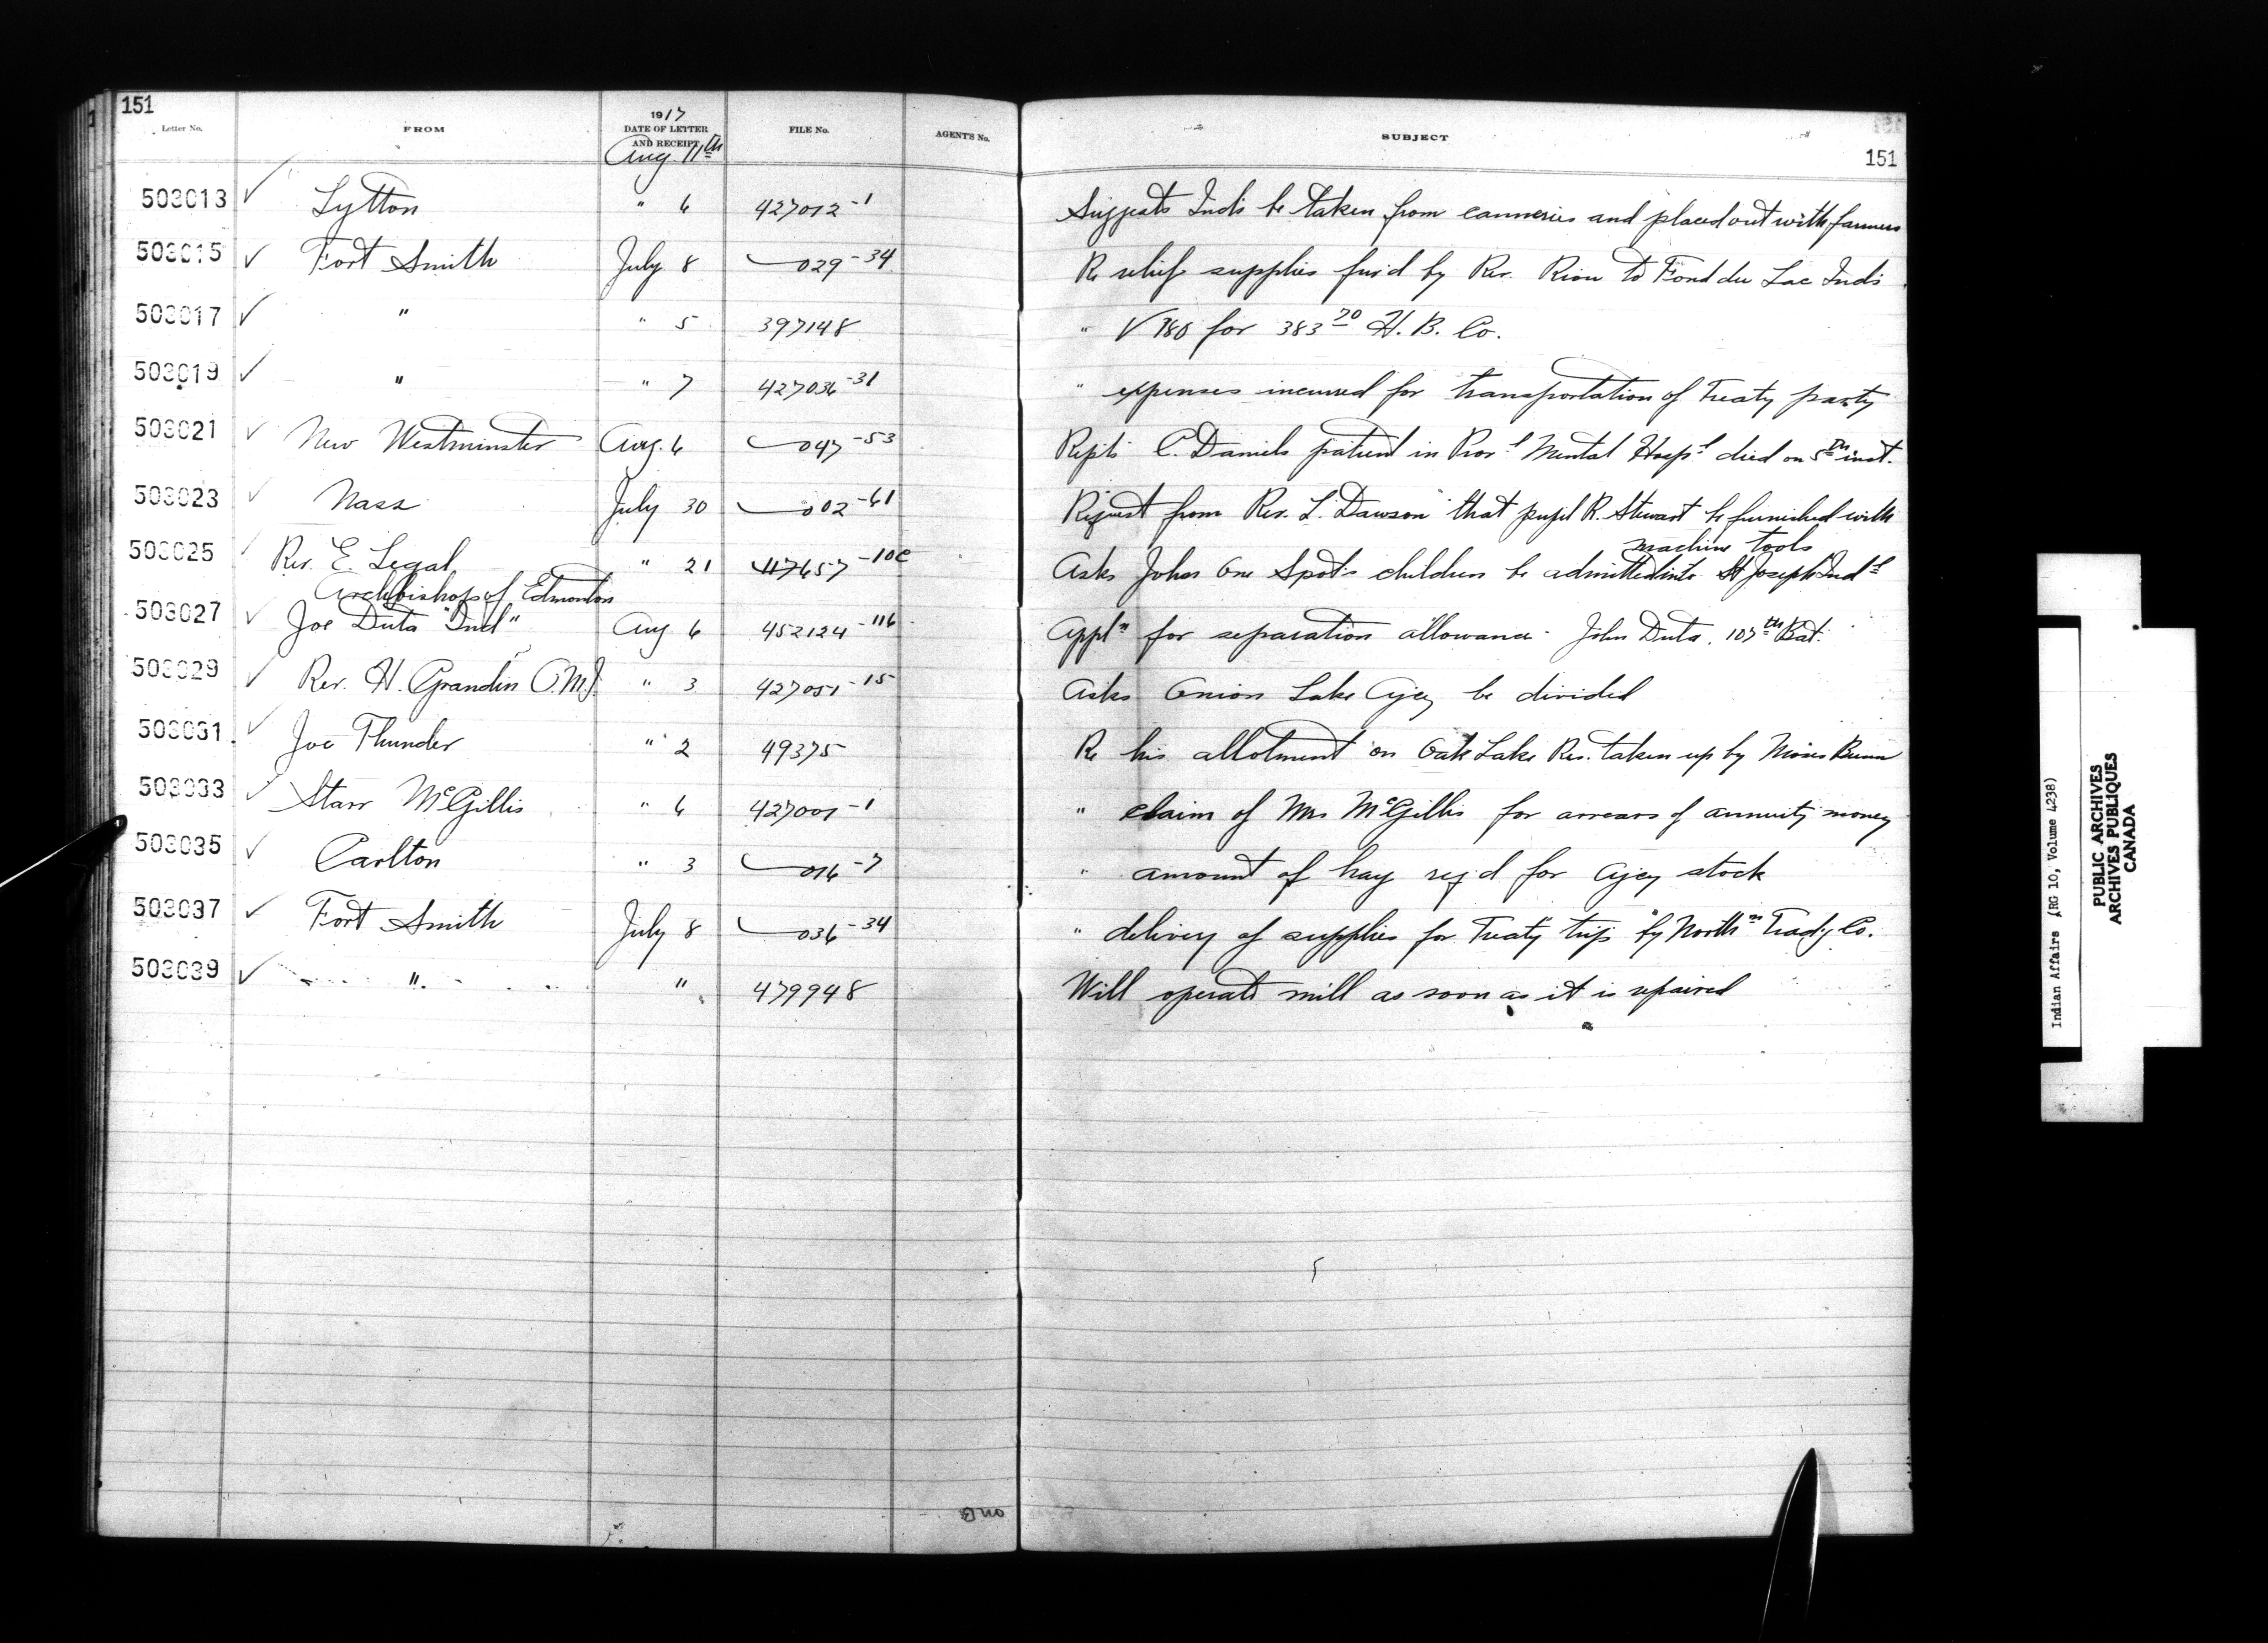 151
1917
Letter No. FROM DATE OF LETTER AND RECEIPT FILE No. AGENT'S No. SUBJECT
Aug. 11th
151
503013 ✓ Lytton " 6 427012-1 Suggests Inds be taken from canneries and placed out with farmers
503015 ✓ Fort Smith July 8 029-34 Re relief supplies furd by Rev. Riou to Fond du Lac Inds
503017 ✓ " " 5 397148 " V 780 for 383 70 H. B. Co.
503019 ✓ " " 7 427036-31 " expenses incurred for transportation of Treaty party
503021 ✓ New Westminster Aug. 6 047-53 Repts C. Daniels patient in Provl Mental Hospl died on 5th inst.
503023 ✓ Nass July 30 002-61 Request from Rev. L. Dawson that pupil R. Stewart be furnished with
machine tools
503025 ✓ Rev. E. Legal " 21 117657-10c Asks John One Spots children be admitted into St Joseph Indl
Archbishop of Edmonton
503027 ✓ Joe Duta "Ind" Aug 6 452124-116 Appln for separation allowance - John Duta. 107th Bat.
503029 ✓ Rev. H. Grandin O.M.I. " 3 427051-15 Asks Onion Lake Agcy be divided
503031 ✓ Joe Thunder " 2 49375 Re his allotment on Oak Lake Res. taken up by Moses Bunn
503033 ✓ Starr McGillis " 6 427001-1 " claim of Mrs McGillis for arrears of annuity money
503035 ✓ Carlton " 3 016-7 " amount of hay reqd for Agcy stock
503037 ✓ Fort Smith July 8 036-34 " delivery of supplies for Treaty trip by Northn Tradg Co.
503039 ✓ " " 479948 Will operate mill as soon as it is repaired
Indian Affairs (RG 10, Volume 4238)
PUBLIC ARCHIVES
ARCHIVES PUBLIQUES
CANADA